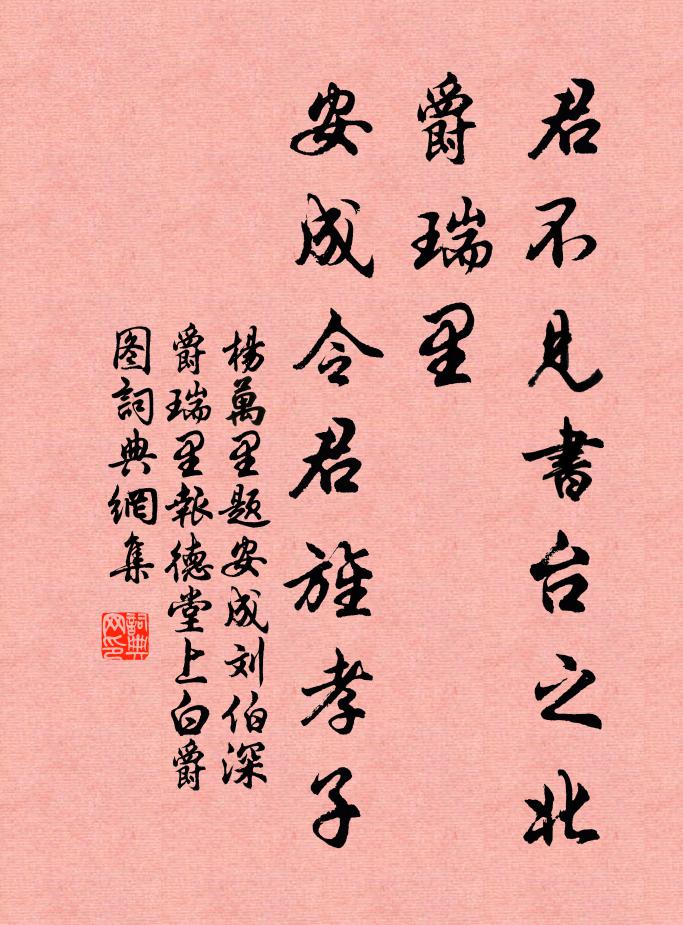 君不见書台之北
爵瑞里
安成令君旌孝子
楊萬里题安成刘伯深
爵瑞里報德堂上白爵
图詞典網集
詞典网印